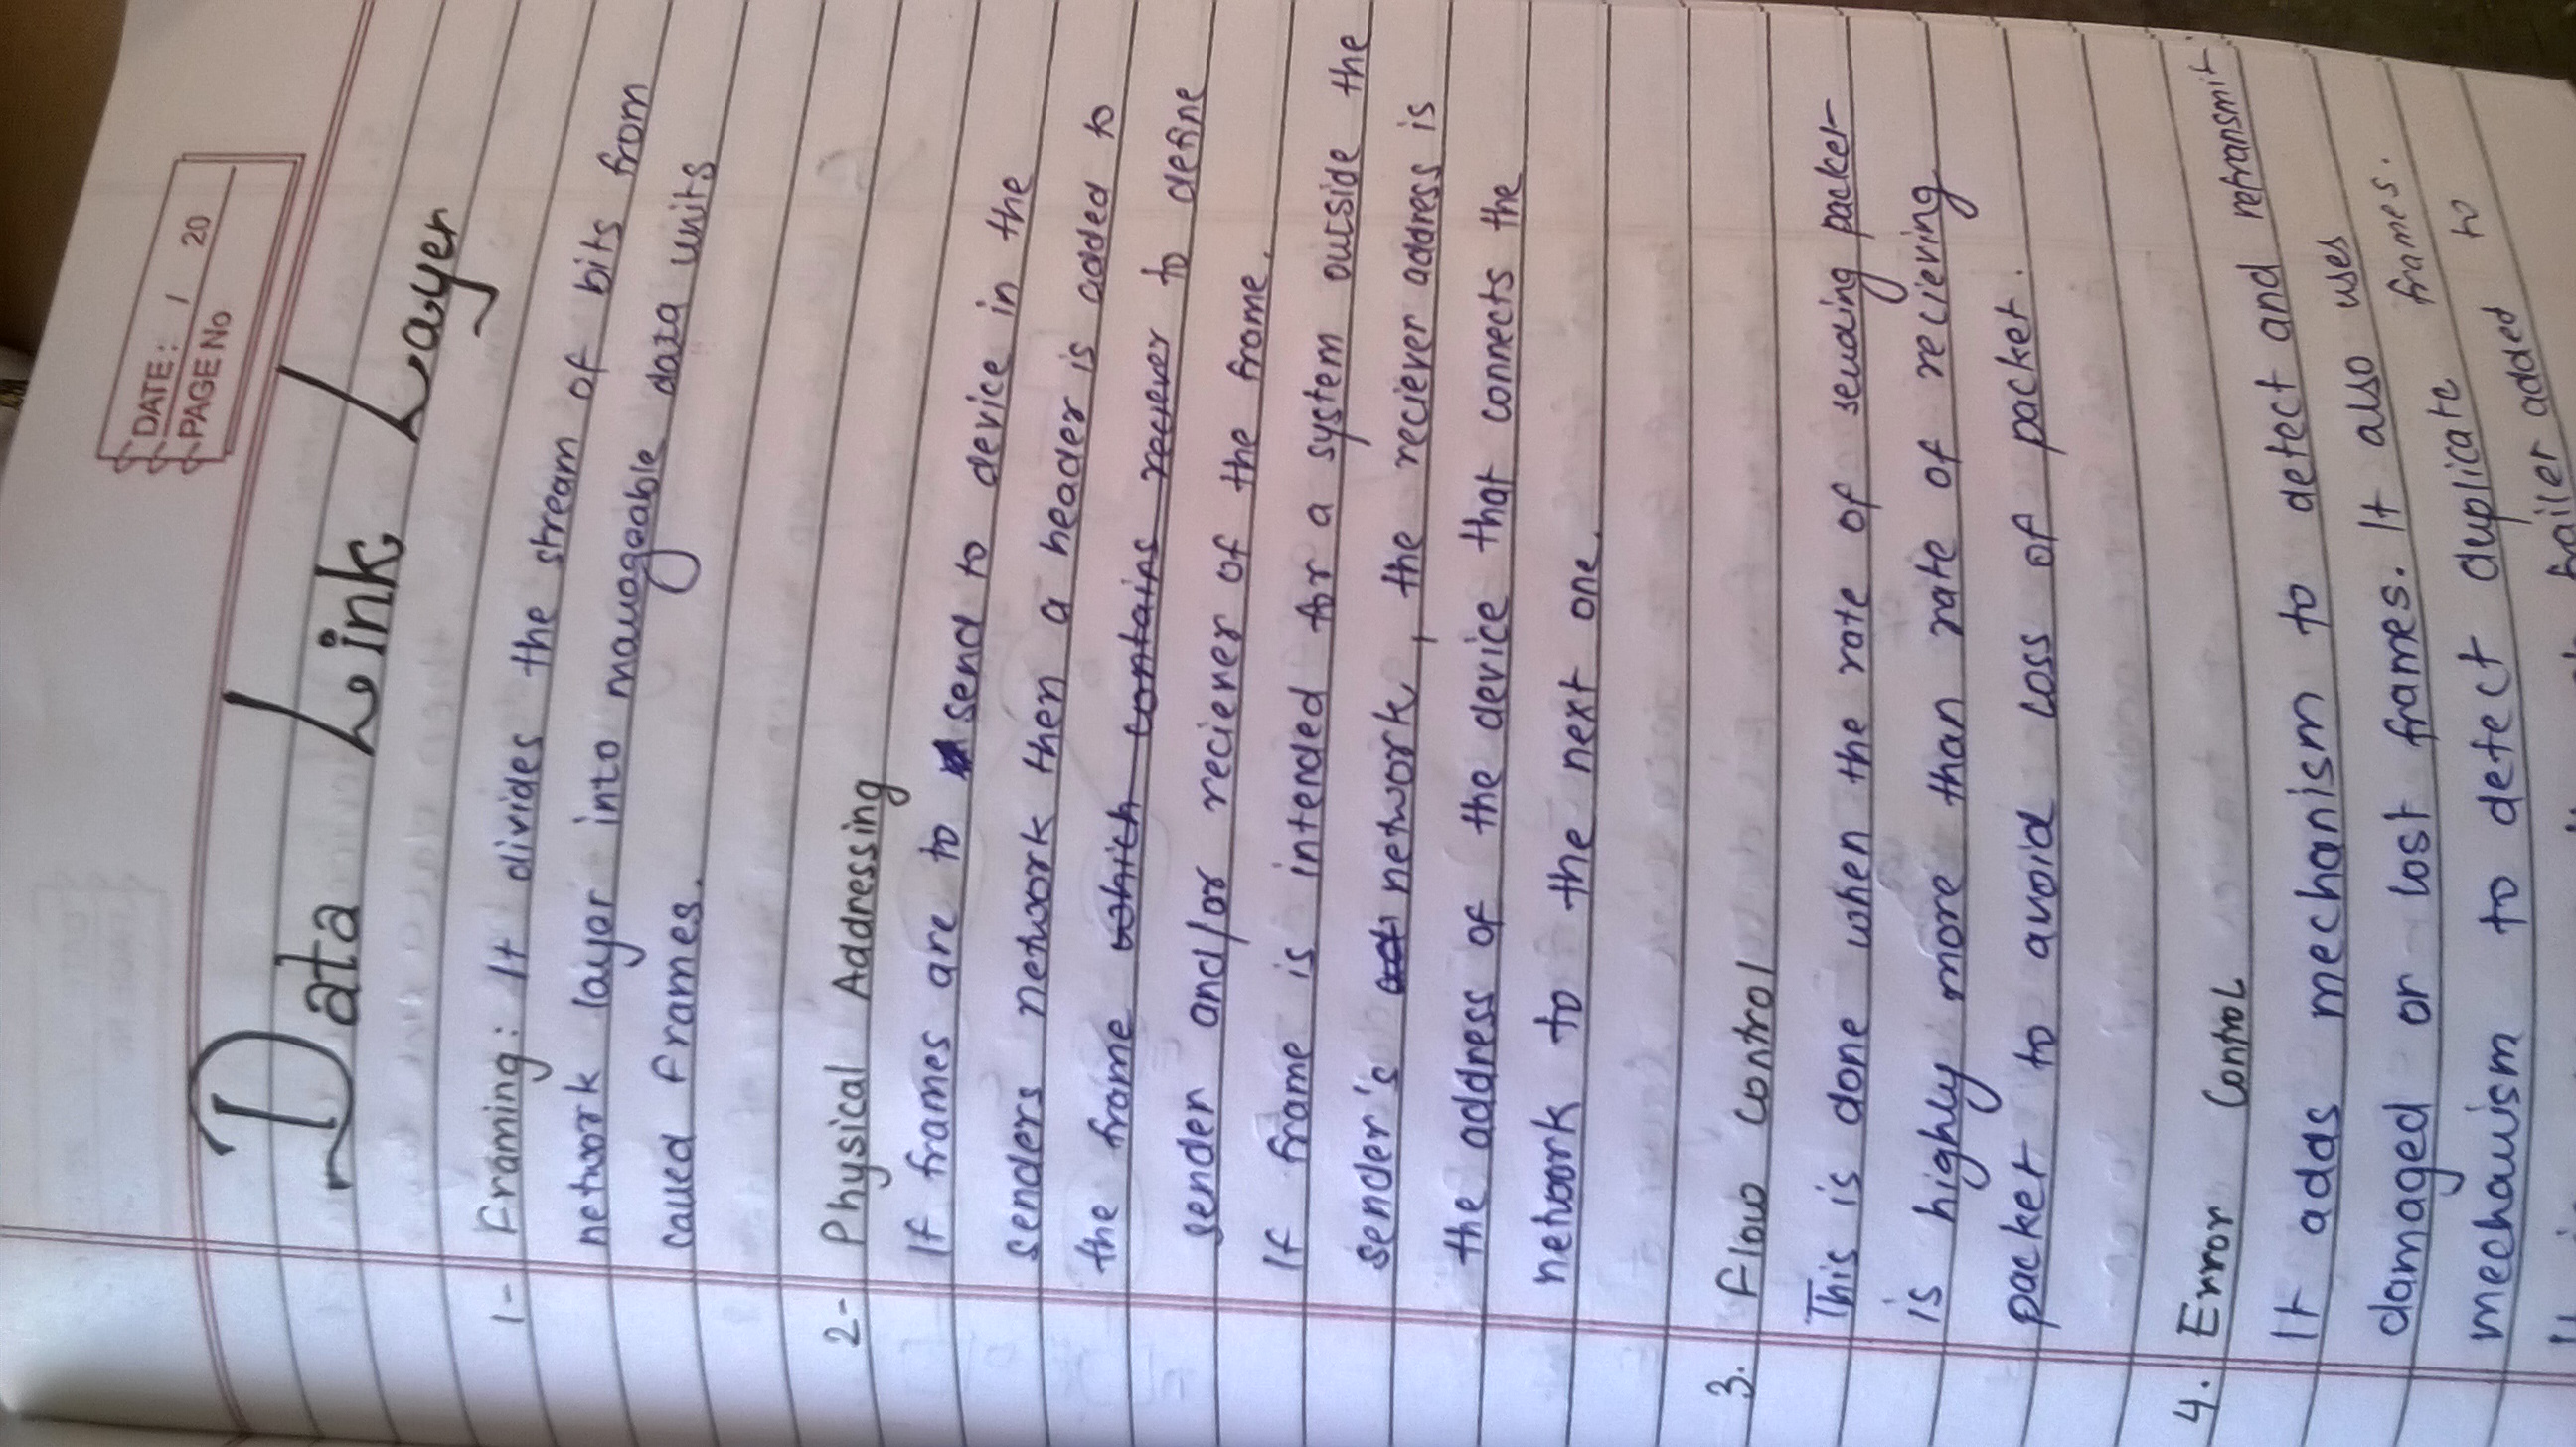 DATE: / 20
PAGE No
Data Link Layer
1- Framing: It divides the stream of bits from
network layer into manageable data units
called frames.
2- Physical Addressing
If frames are to send to device in the
senders network then a header is added to
the frame which contains reciever to define
sender and/or reciever of the frame.
If frame is intended for a system outside the
sender's network, the reciever address is
the address of the device that connects the
network to the next one.
3. Flow control
This is done when the rate of sending packet
is highly more than rate of recieving
packet to avoid loss of packet.
4. Error Control
It adds mechanism to detect and retransmit
damaged or lost frames. It also uses
mechanism to detect duplicate frames.
trailer added to